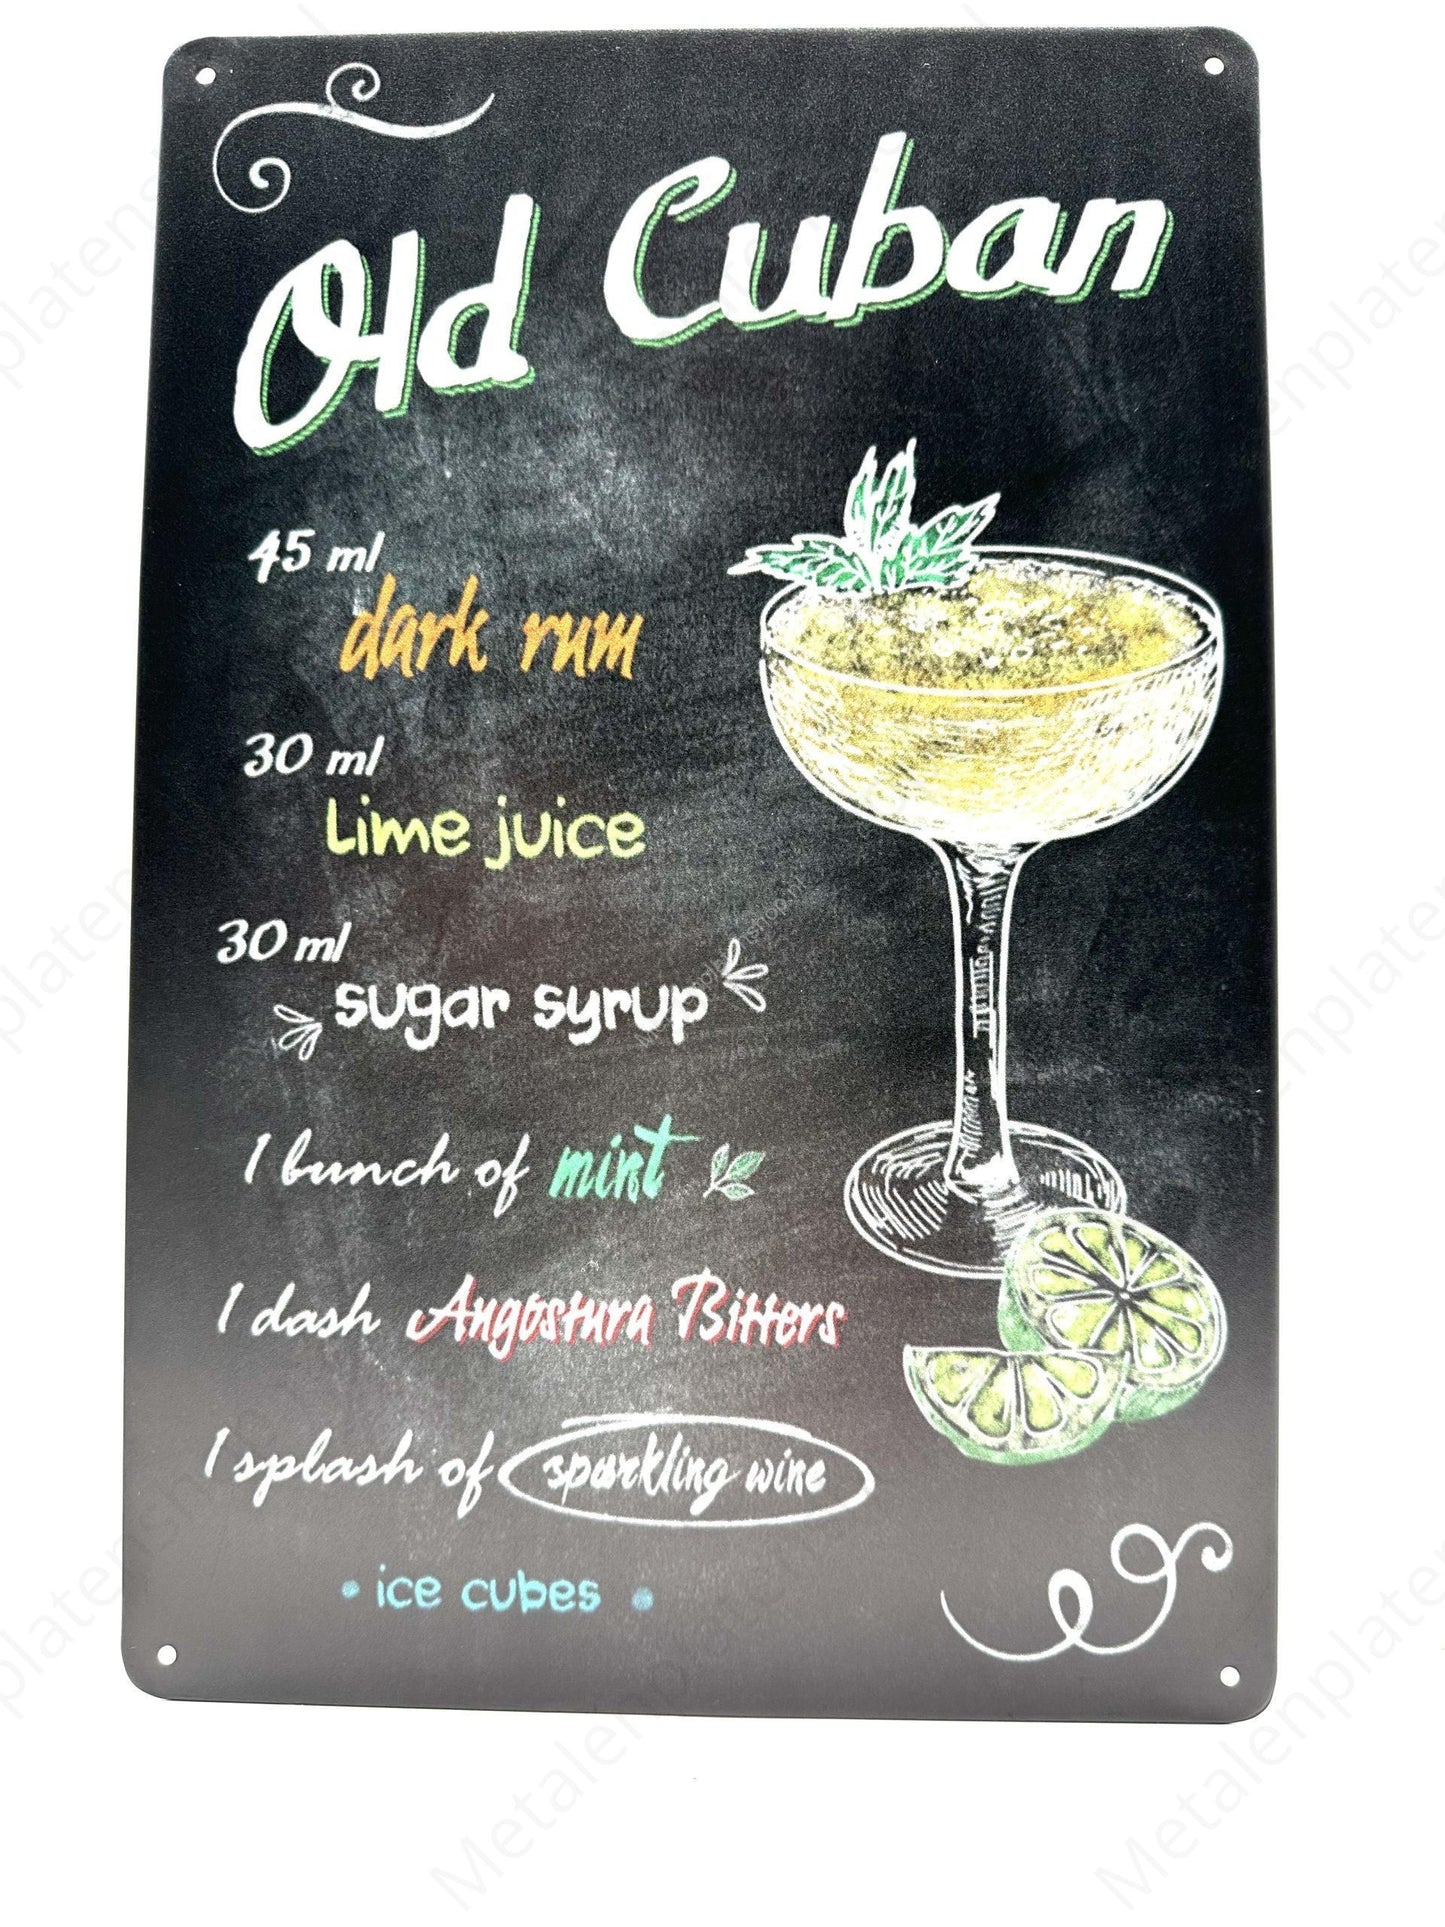 Old Cuban
45 ml
dark rum
30 ml
Lime juice
30 ml
sugar syrup
1 bunch of mint
1 dash Angostura Bitters
1 splash of sparkling wine
• ice cubes •